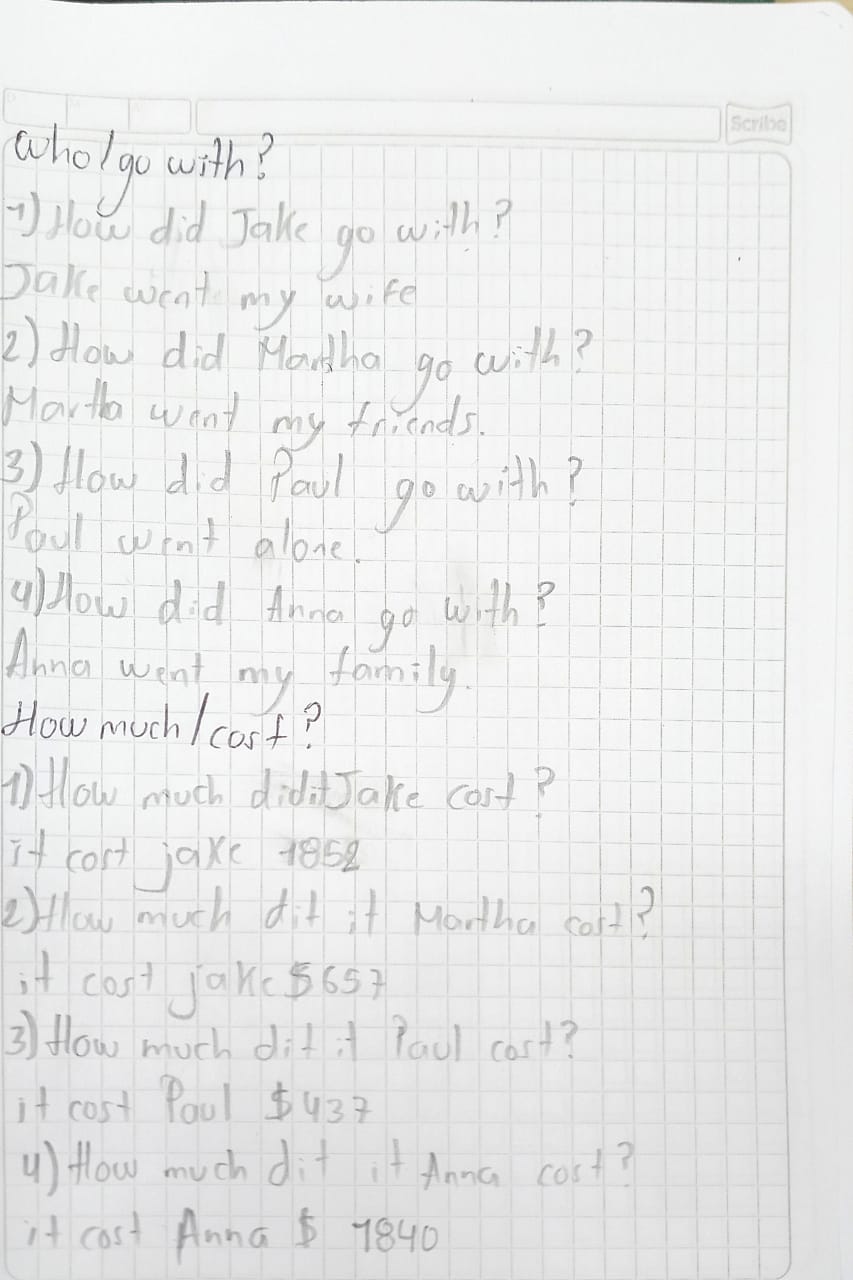 Scribe
Who/go with?
1) How did Jake go with?
Jake went my wife
2) How did Martha go with?
Martha went my friends.
3) How did Paul go with?
Paul went alone.
4) How did Anna go with?
Anna went my family.
How much/cost?
1) How much did it Jake cost?
it cost jake 1852
2) How much dit it Martha cost?
it cost jake $657
3) How much dit it Paul cost?
it cost Paul $437
4) How much dit it Anna cost?
it cost Anna $ 1840